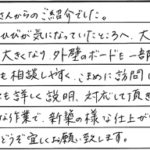 さんからのご紹介でした。
ひびが気になっていたところへ、大
大きくなり、外壁のボードを一部
も相談しやすく、こまめに訪問し
も詳しく説明、対応して頂き
なり丁寧で、新築の様な仕上が
どうぞ宜しくお願い致します。